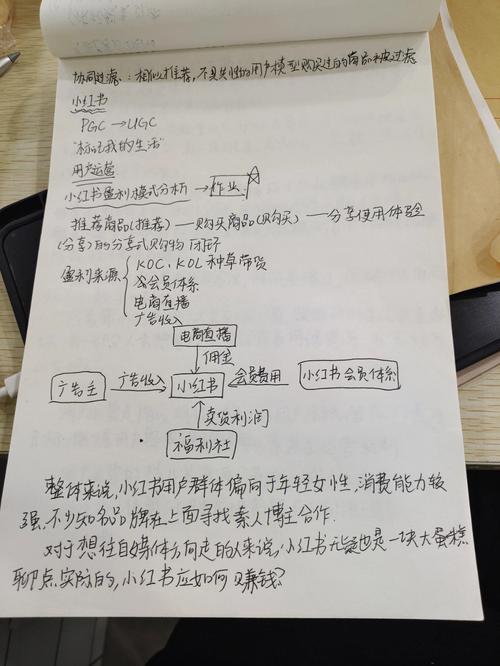 协同过滤:相似推荐,不具共性的用户模型购买过的商品被过滤
小红书
PGC → UGC
"标记我的生活"
用户运营
小红书盈利模式分析 → 作业 ☆
推荐商品(推荐) — 购买商品(购买) — 分享使用体验
(分享)的分享式购物闭环
盈利来源 { KOC、KOL种草带货
会员体系
电商直播
广告收入
电商直播
佣金
广告主 广告收入 小红书 会员费用 小红书会员体系
卖货利润
福利社
整体来说,小红书用户群体偏向于年轻女性,消费能力较
强,不少知名品牌在上面寻找素人博主合作.
对于想往自媒体方向走的人来说,小红书无疑也是一块大蛋糕
聊点实际的,小红书应如何赚钱?